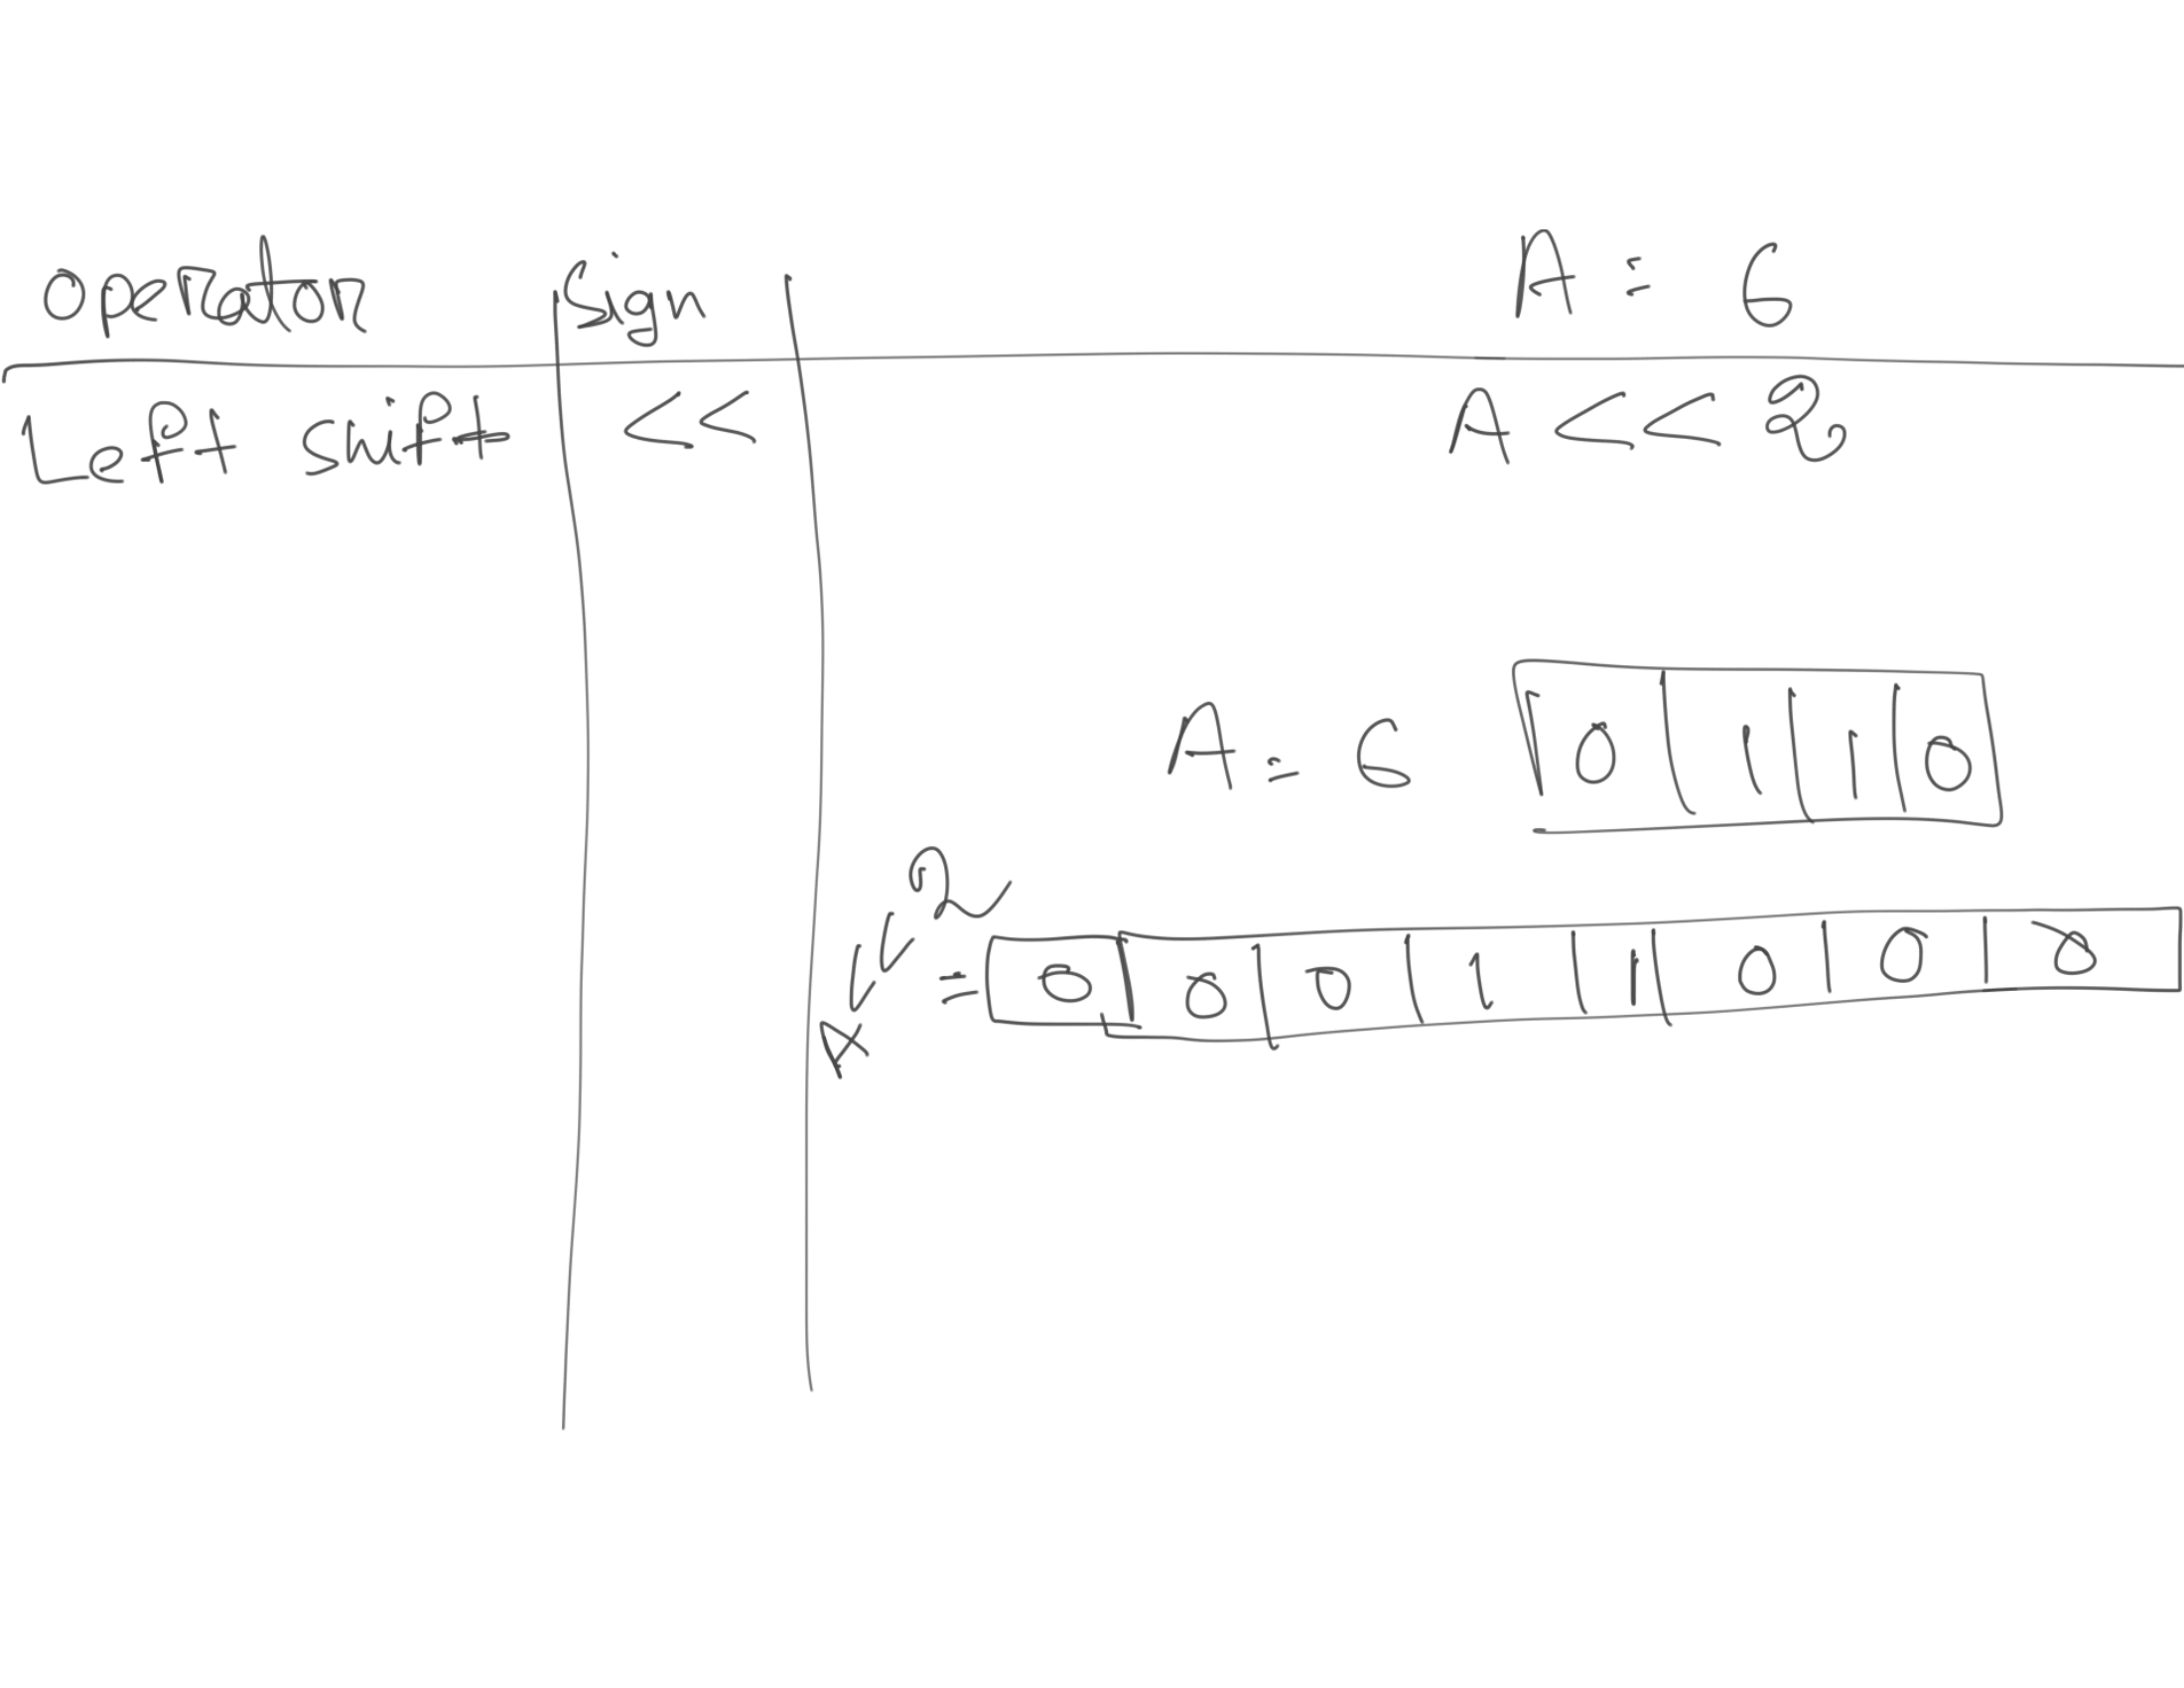 operator sign A = 6
Left swift << A << 2
A = 6 0 1 1 0
A << 2 = 0 0 0 1 1 0 0 0